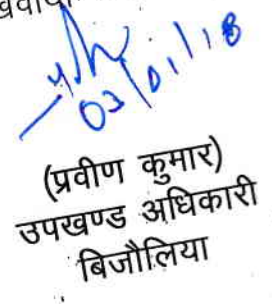 03/01/18
(प्रवीण कुमार)
उपखण्ड अधिकारी
बिजौलिया